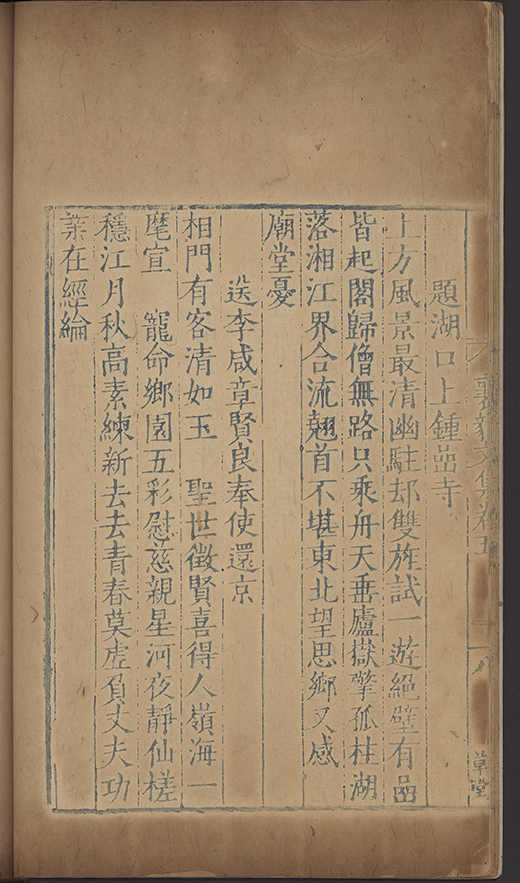 襄毅文集卷五
八
草堂
題湖口上鍾嵓寺
上方風景最清幽駐却雙旌試一遊絕壁有嵓
皆起閣歸僧無路只乘舟天垂廬嶽擎孤柱湖
落湘江界合流翹首不堪東北望思鄉又感
廟堂憂
送李咸章賢良奉使還京
相門有客清如玉 聖世徵賢喜得人嶺海一
麾宣 寵命鄉園五彩慰慈親星河夜靜仙槎
穩江月秋高素練新去去青春莫虛負丈夫功
業在經綸